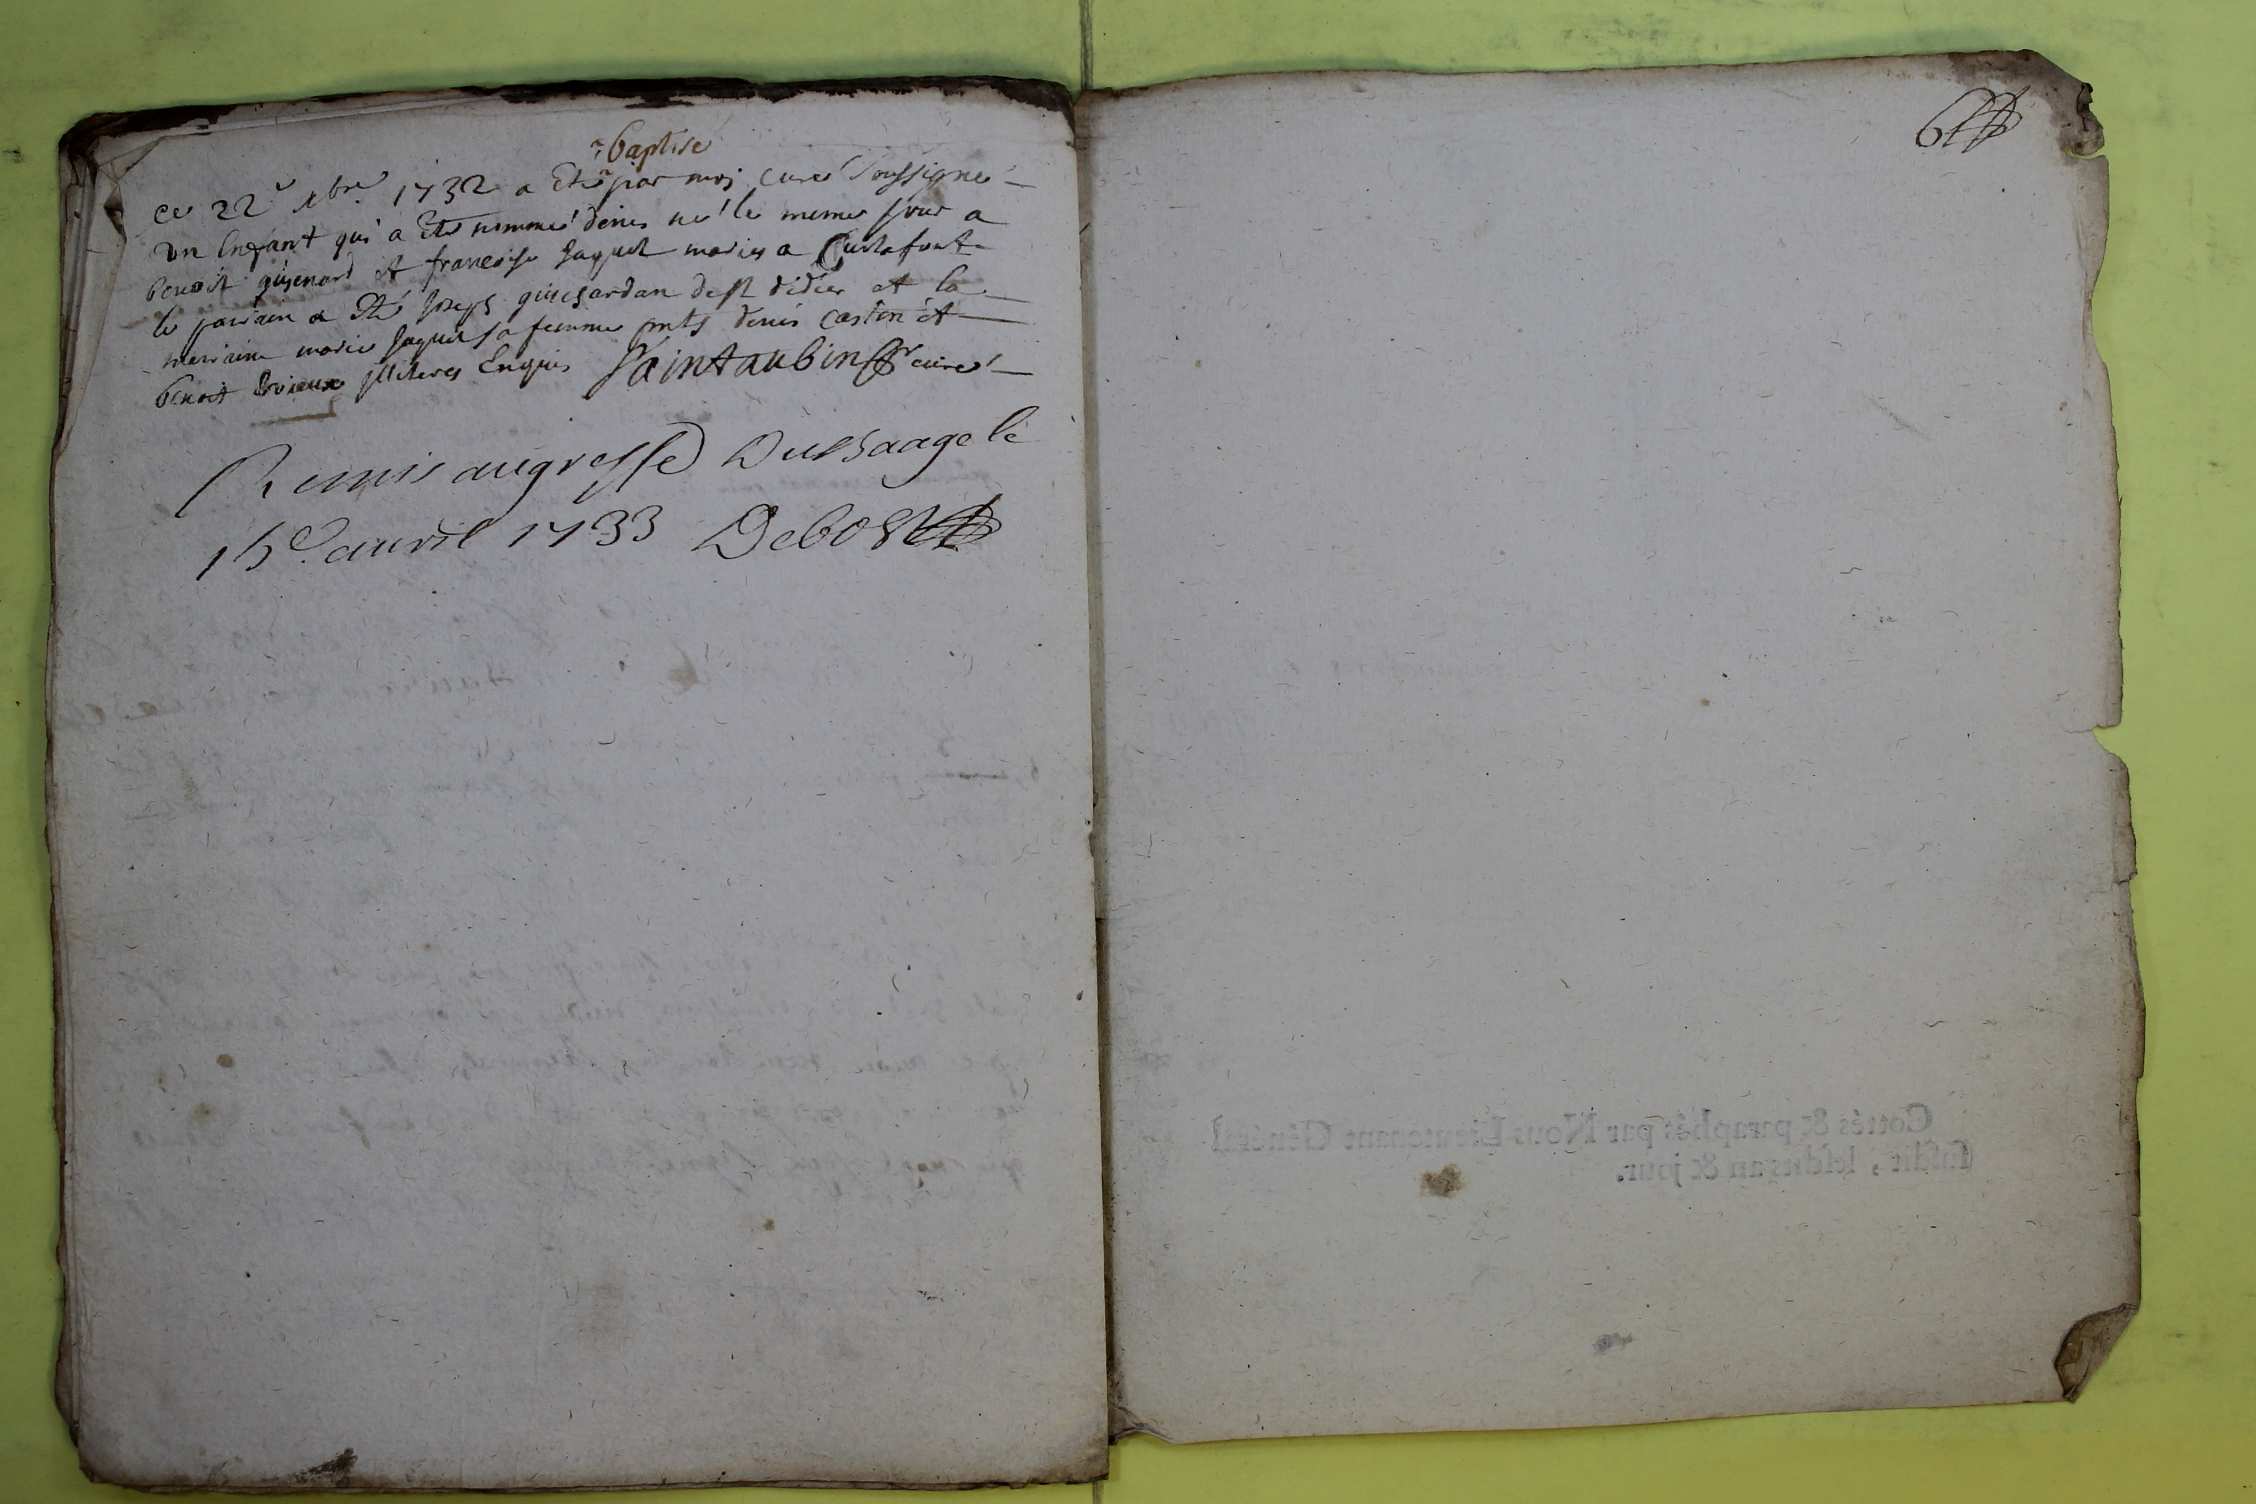 baptisé
ce 22e xbre 1732 a eté par moi curé soussigné
un enfant qui a eté nommé denis né le meme jour a
benoit guienard et francoise jaquet mariés a Curtafont
le parrain a eté joseph guichardan de st didier et la
marraine marie jaquet sa femme pnts denis caston et
benoit illiteres enquis Saintaubin curé
Remis au greffe du Bâage le
15e avril 1733 Debost
6
Cottés & paraphés par Nous Lieutenant Général
susdit, lesdits an & jour.